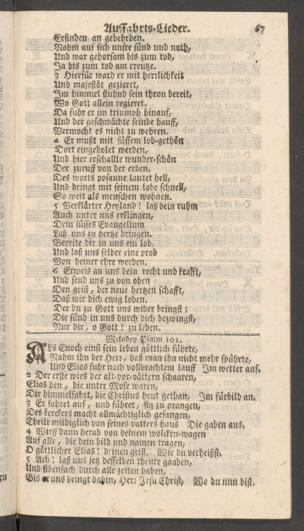 Auffahrts-Lieder. 67
Erfinden an gebehrden.
Nahm auf sich unsre sünd und noth,
Und war gehorsam bis zum tod,
Ja bis zum tod am creutze.
3 Hierfür ward er mit herrlichkeit
Und majestät gezieret,
Im himmel stuhnd sein thron bereit,
Wo Gott allein regieret.
Da fuhr er im triumph hinauf,
Und der geschwächte feinde hauff,
Vermocht es nicht zu wehren.
4 Er mußt mit süssem lob-gethön
Dort eingeholet werden,
Und hier erschallte wunder-schön
Der zuruff von der erden.
Des worts posaune lautet hell,
Und dringt mit seinem lobe schnell,
So weit als menschen wohnen.
5 Verklärter Heyland! laß dein ruhm
Auch unter uns erklingen,
Dein süsses Evangelium
Laß uns zu hertze dringen.
Bereite dir in uns ein lob,
Und laß uns selber eine prob
Von deiner ehre werden.
6 Erweis an uns dein recht und krafft,
Und send uns zu von oben
Den geist, der neue hertzen schafft,
Daß wir dich ewig loben.
Der du zu Gott uns wider bringst:
Die sünd in uns durch dich bezwingst,
Nur dir, o Gott! zu leben.
Melodey Psalm 101.
Als Enoch einst sein leben göttlich führte,
Nahm ihn der Herr, daß man ihn nicht mehr spührte,
Und Elias fuhr nach vollbrachtem lauff Im wetter auf.
2 Der erste wies der alt-vor-vättern schaaren,
Elias den, die unter Mose waren,
Die himmelfahrt, die Christus heut gethan, Im fürbild an.
3 Er fahret auf, und führet, sig zu prangen,
Des kerckers macht allmächtiglich gefangen,
Theilt mildiglich von seines vatters haus Die gaben aus.
4 Wirff dann herab von deinem wolcken-wagen
Auf alle, die dein bild und namen tragen,
O göttlicher Elias! deinen geist, Wie du verheißst.
5 Ach! laß uns jez desselben theure gaaben,
Und sibenfach durch alle zeiten haben,
Bis er uns bringt dahin, Herr Jesu Christ, Wo du nun bist.